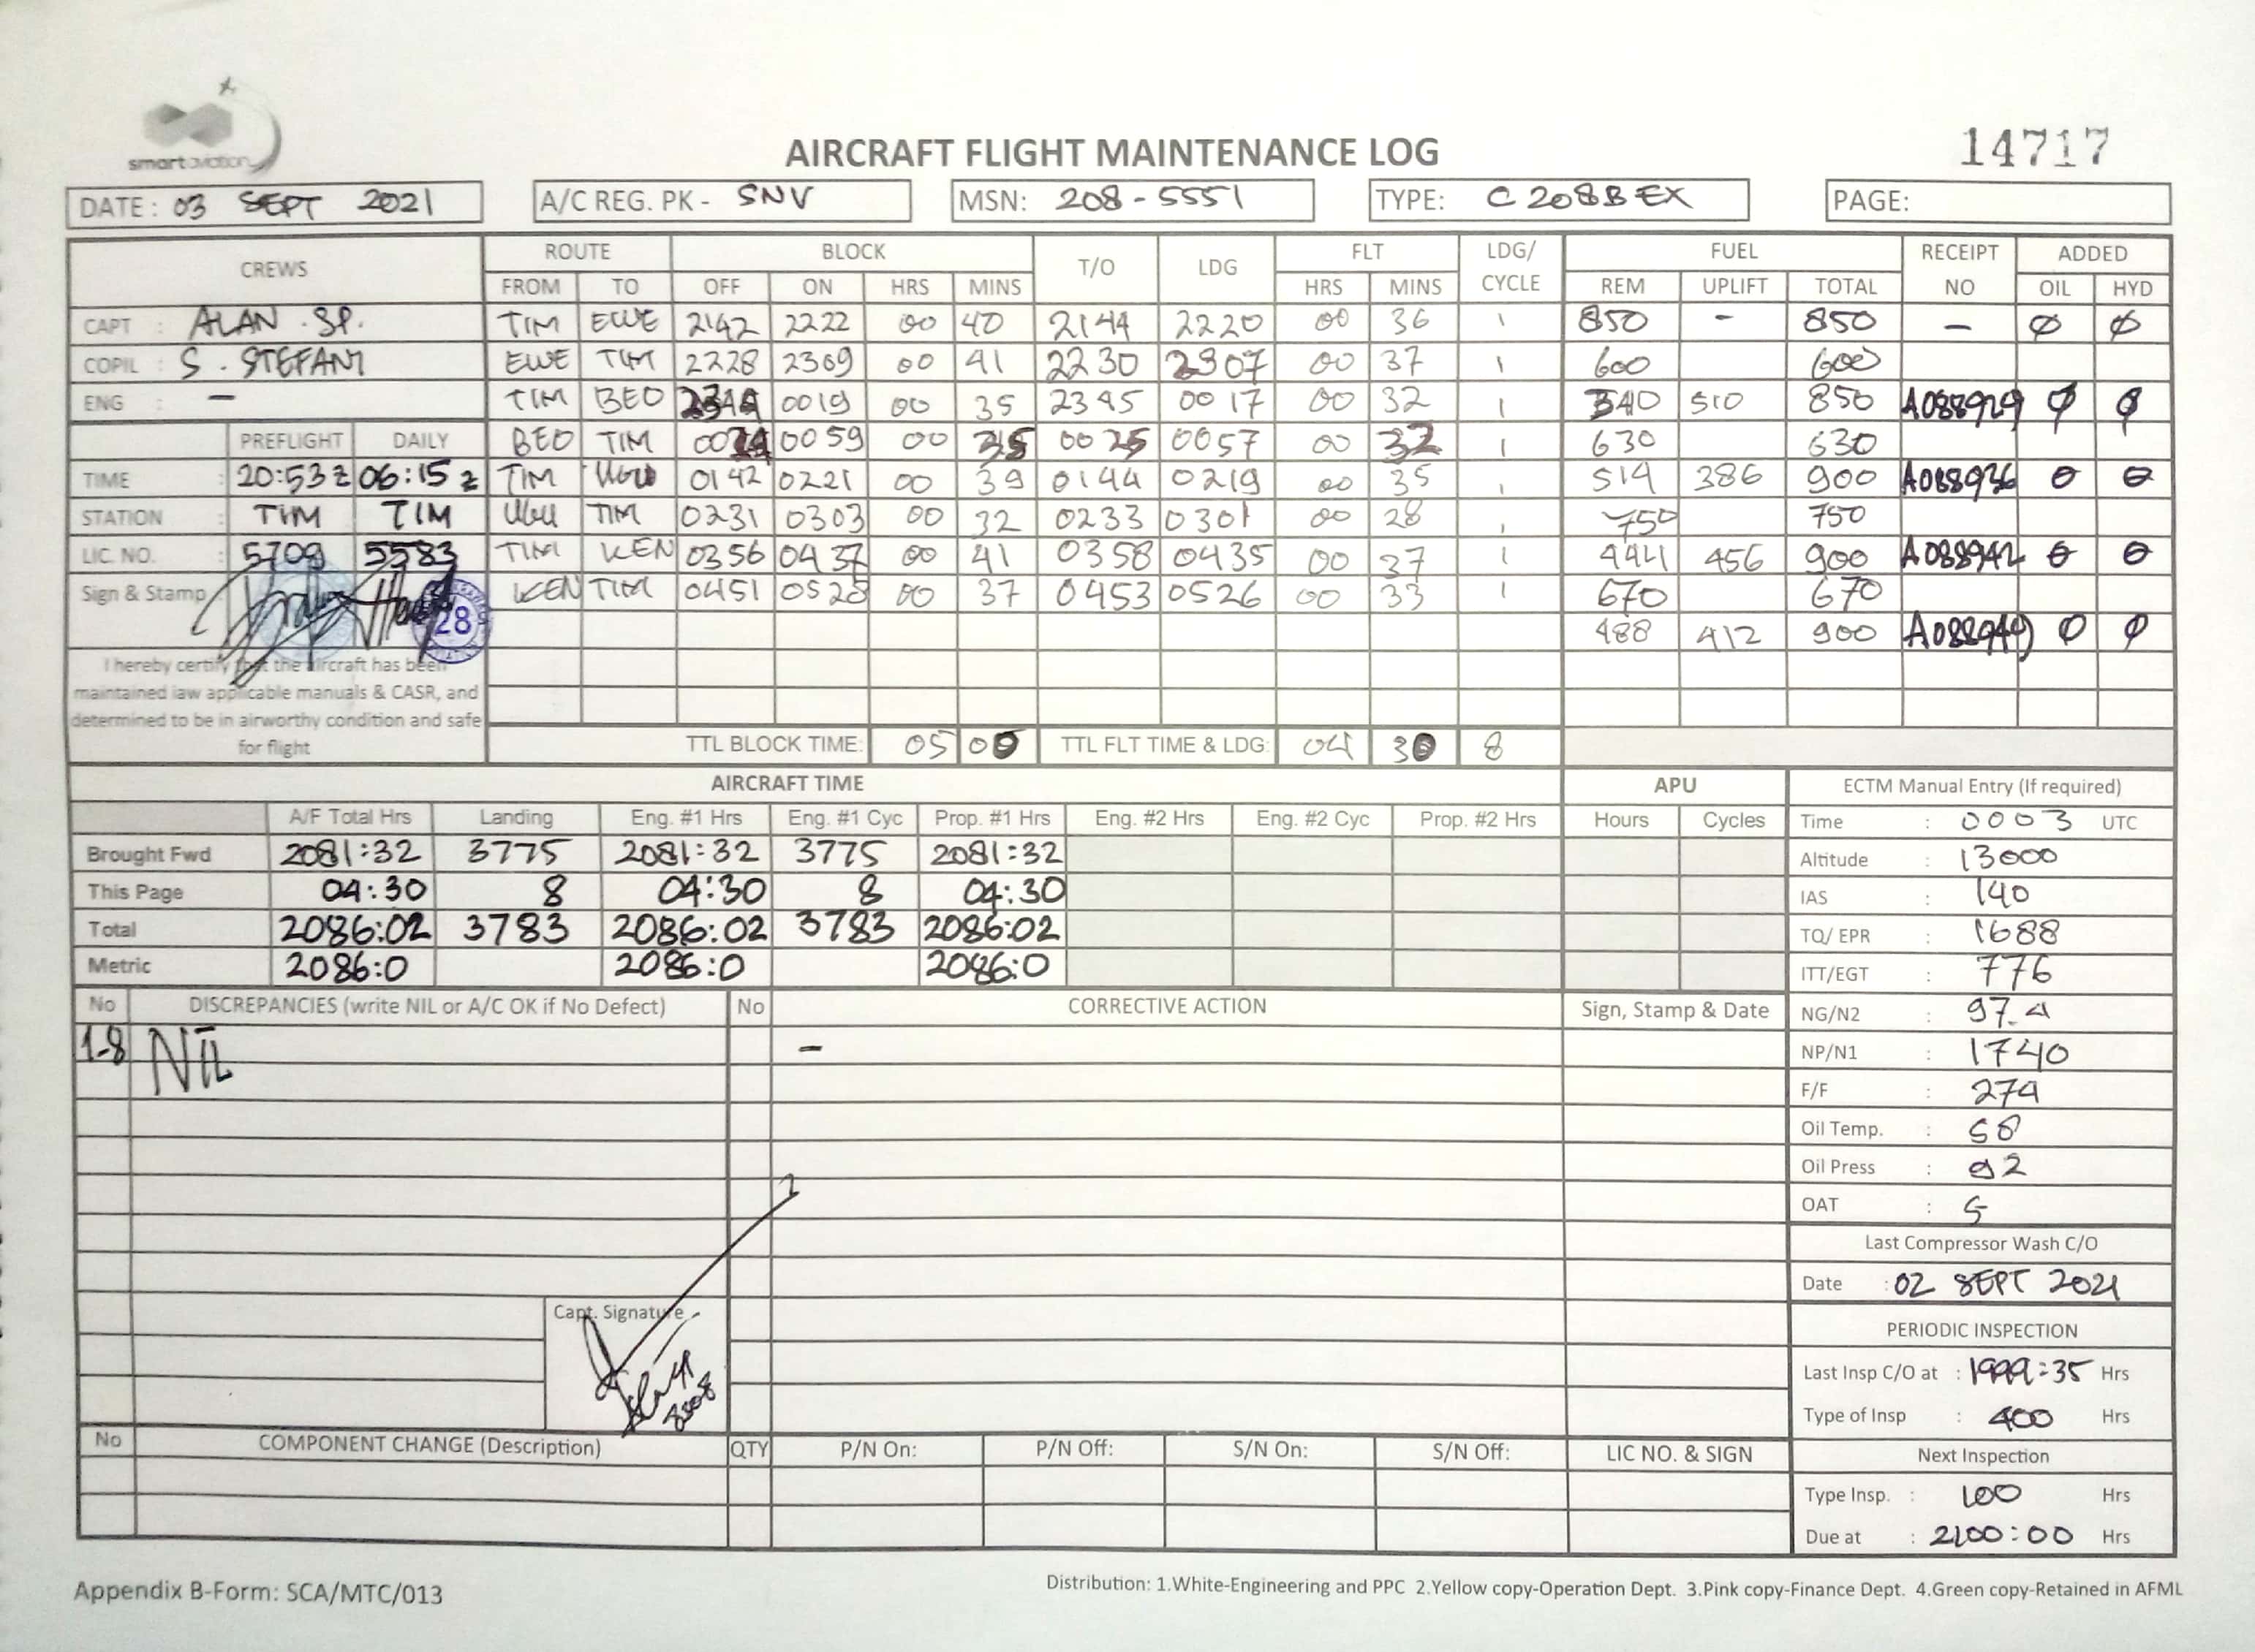 smart aviation
AIRCRAFT FLIGHT MAINTENANCE LOG
14717
DATE : 03 SEPT 2021
A/C REG. PK - SNV
MSN: 208-5551
TYPE: C208B EX
PAGE:
CREWS ROUTE BLOCK T/O LDG FLT LDG/ CYCLE FUEL RECEIPT NO ADDED
FROM TO OFF ON HRS MINS HRS MINS REM UPLIFT TOTAL OIL HYD
CAPT : ALAN . SP. TIM EWE 2142 2222 00 40 2144 2220 00 36 1 850 - 850 - Ø Ø
COPIL : S. STEFANI EWE TIM 2228 2309 00 41 2230 2307 00 37 1 600 600
ENG : - TIM BEO 0019 00 35 2345 0017 00 32 1 340 510 850 A088929 Ø Ø
PREFLIGHT DAILY BEO TIM 0024 0059 00 35 0025 0057 00 32 1 630 630
TIME : 20:53 z 06:15 z TIM UGU 0142 0221 00 39 0144 0219 00 35 1 514 386 900 A088936 0 0
STATION : TIM TIM UGU TIM 0231 0303 00 32 0233 0301 00 28 1 750 750
LIC. NO. : 5709 5583 TIM KEN 0356 0437 00 41 0358 0435 00 37 1 444 456 900 A088942 0 0
Sign & Stamp 28 KEN TIM 0451 0528 00 37 0453 0526 00 33 1 670 670
488 412 900 A088949 Ø Ø
I hereby certify that the aircraft has been
maintained iaw applicable manuals & CASR, and
determined to be in airworthy condition and safe
for flight
TTL BLOCK TIME: 05 00 TTL FLT TIME & LDG: 04 30 8
AIRCRAFT TIME APU
A/F Total Hrs Landing Eng. #1 Hrs Eng. #1 Cyc Prop. #1 Hrs Eng. #2 Hrs Eng. #2 Cyc Prop. #2 Hrs Hours Cycles
Brought Fwd 2081:32 3775 2081:32 3775 2081:32
This Page 04:30 8 04:30 8 04:30
Total 2086:02 3783 2086:02 3783 2086:02
Metric 2086:0 2086:0 2086:0
ECTM Manual Entry (If required)
Time : 0003 UTC
Altitude : 13000
IAS : 140
TQ/ EPR : 1688
ITT/EGT : 776
NG/N2 : 97.4
NP/N1 : 1740
F/F : 274
Oil Temp. : 58
Oil Press : 92
OAT : 5
Last Compressor Wash C/O
Date : 02 SEPT 2021
PERIODIC INSPECTION
Last Insp C/O at : 1999:35 Hrs
Type of Insp : 400 Hrs
Next Inspection
Type Insp. : 100 Hrs
Due at : 2100:00 Hrs
No DISCREPANCIES (write NIL or A/C OK if No Defect) No CORRECTIVE ACTION Sign, Stamp & Date
1-8 NIL -
Capt. Signature
No COMPONENT CHANGE (Description) QTY P/N On: P/N Off: S/N On: S/N Off: LIC NO. & SIGN
Appendix B-Form: SCA/MTC/013
Distribution: 1.White-Engineering and PPC 2.Yellow copy-Operation Dept. 3.Pink copy-Finance Dept. 4.Green copy-Retained in AFML